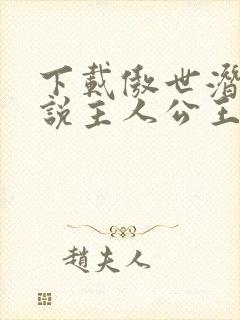 下載傲世潛
説主人公王
趙夫人